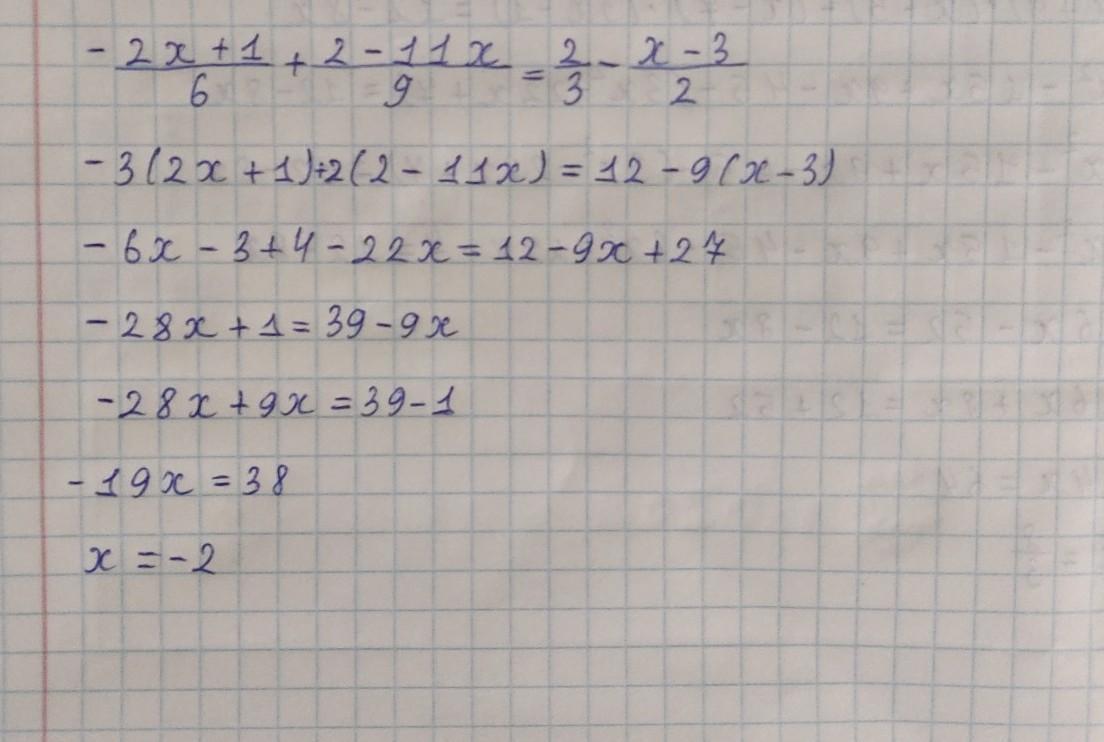 -\frac{2x+1}{6}+\frac{2-11x}{9}=\frac{2}{3}-\frac{x-3}{2}
-3(2x+1)+2(2-11x)=12-9(x-3)
-6x-3+4-22x=12-9x+27
-28x+1=39-9x
-28x+9x=39-1
-19x=38
x=-2